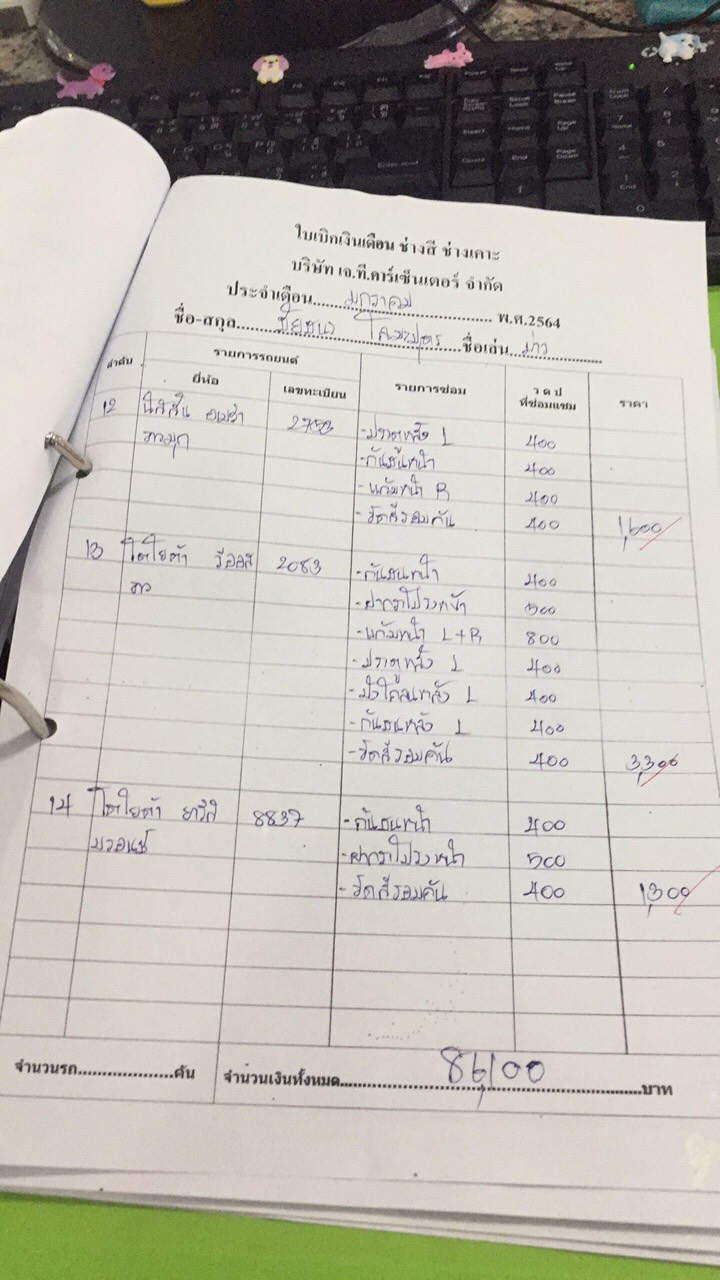 ใบเบิกเงินเดือน ช่างสี ช่างเคาะ
บริษัท เจ.ที.คาร์เซ็นเตอร์ จำกัด
ประจำเดือน........มกราคม........ พ.ศ.2564
ชื่อ-สกุล................ชื่อเล่น................
ลำดับ รายการรถยนต์ รายการซ่อม ว ด ป ราคา
ยี่ห้อ เลขทะเบียน ที่ซ่อมแซม
12 นิสสัน 2753 -ประตูหลัง L 400
ขาวมุก -กันชนหน้า 400
-แก้มหน้า R 400
-ขัดสีรอบคัน 400 1,600
13 โตโยต้า วีออส 2083 -กันชนหน้า 400
ขาว -ฝากระโปรงหน้า 500
-แก้มหน้า L+R 800
-ประตูหลัง L 400
-บังโคลนหลัง L 400
-กันชนหลัง L 400
-ขัดสีรอบคัน 400 3,300
14 โตโยต้า ยาริส 8837 -กันชนหน้า 400
บรอนซ์ -ฝากระโปรงหน้า 500
-ขัดสีรอบคัน 400 1,300
จำนวนรถ....................คัน จำนวนเงินทั้งหมด........86,100........บาท